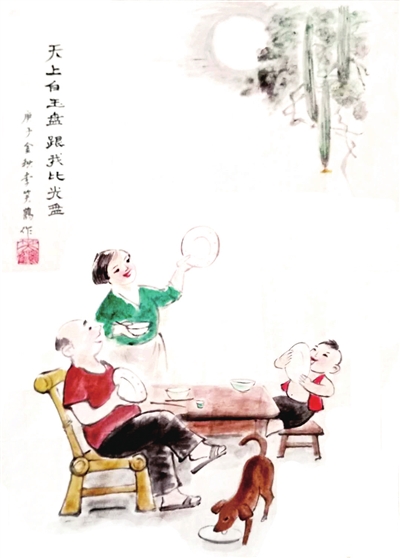 天上白玉盘跟我比光盘
庚子金秋李笑鹤作